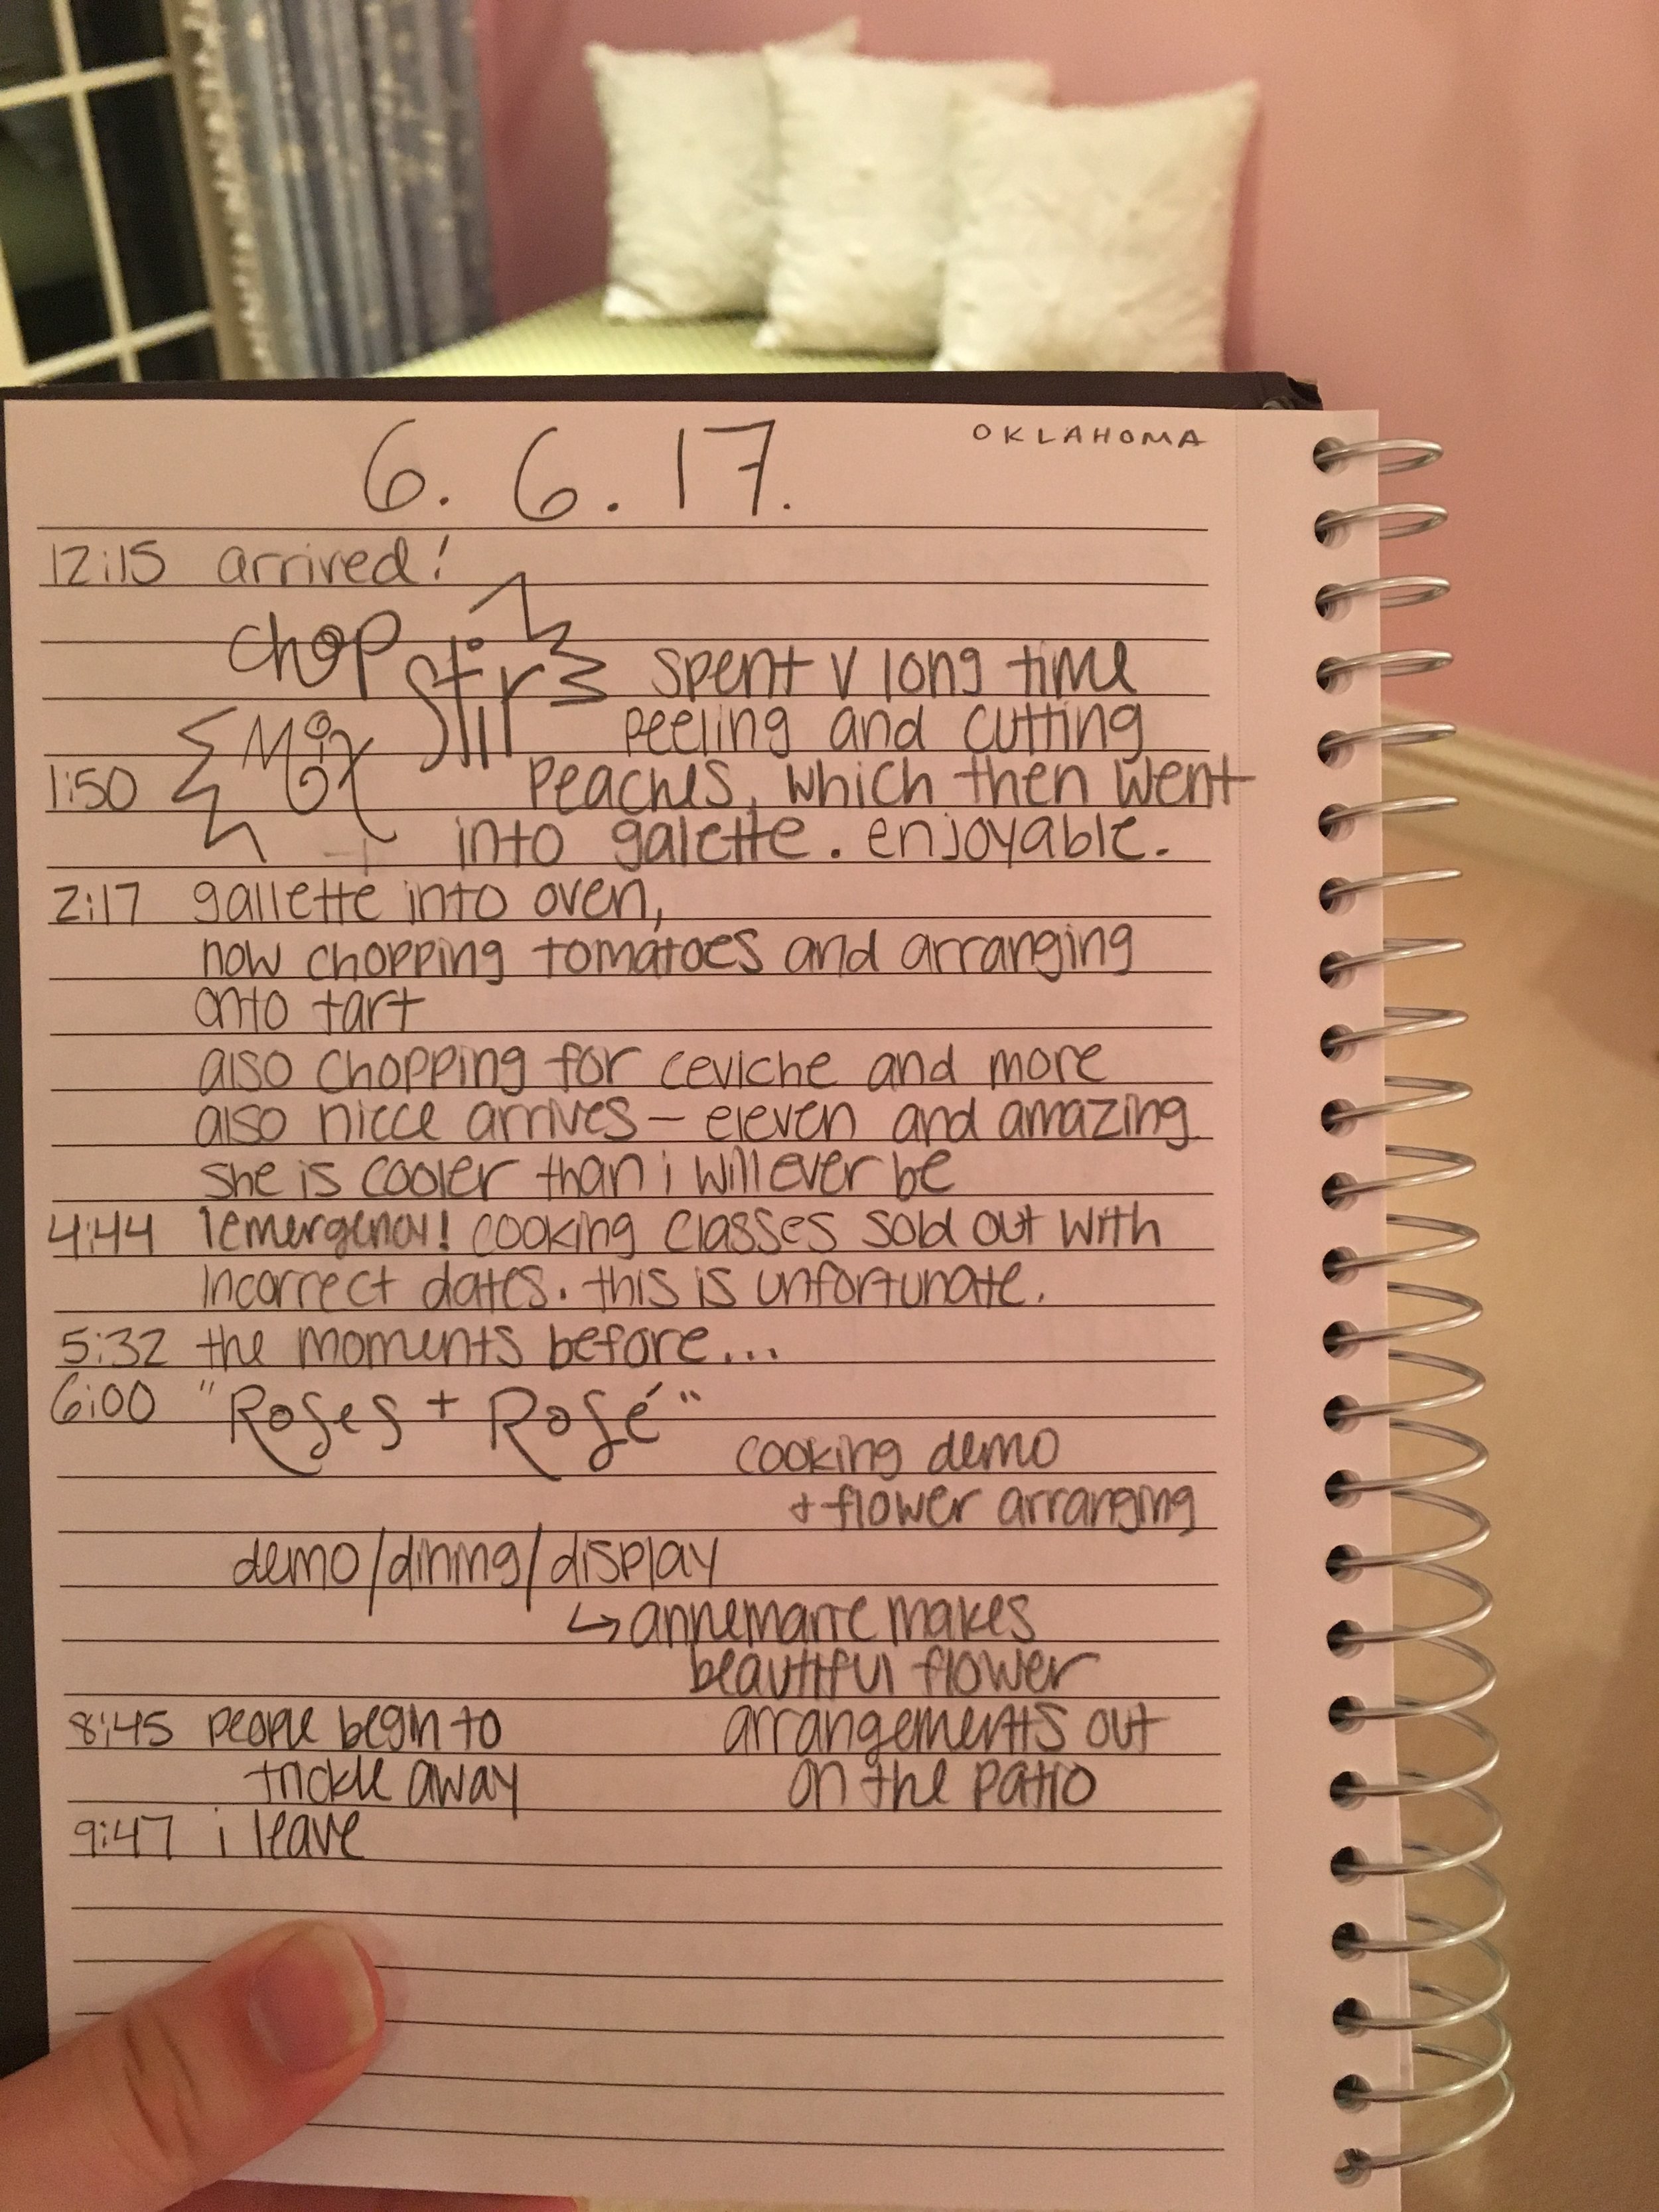 OKLAHOMA
6. 6. 17.
12:15 arrived!
chop
stir
spent v long time
Mix
peeling and cutting
1:50
peaches, which then went
into galette. enjoyable.
2:17 gallette into oven,
now chopping tomatoes and arranging
onto tart
also chopping for ceviche and more
also niece arrives — eleven and amazing
she is cooler than i will ever be
4:44 ¡emergency! cooking classes sold out with
incorrect dates. this is unfortunate.
5:32 the moments before...
6:00 "Roses + Rosé"
cooking demo
+ flower arranging
demo/dining/display
↳ annemarie makes
beautiful flower
arrangements out
on the patio
8:45 people begin to
trickle away
9:47 i leave